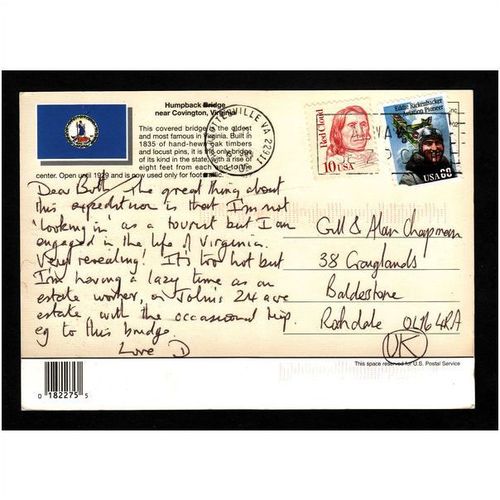 Humpback Bridge
near Covington, Virginia
This covered bridge is the oldest
and most famous in Virginia. Built in
1835 of hand-hewn oak timbers
and locust pins, it is the only bridge
of its kind in the state, with a rise of
eight feet from each end to the
center. Open until 1929 and is now used only for foot traffic.
VILLE VA 22911
Red Cloud
10 USA
Eddie Rickenbacker
Aviation Pioneer
USA 60
Dear Both, The great thing about
this expedition is that I'm not
'looking in' as a tourist but I am
engaged in the life of Virginia.
Very revealing! It's too hot but
I'm having a lazy time as an
estate worker, on John's 24 acre
estate with the occasional trip
eg to this bridge.
Love D
Gill & Alan Chapman
38 Craglands
Balderstone
Rochdale OL16 4RA
UK
This space reserved for U.S. Postal Service
0 182275 5